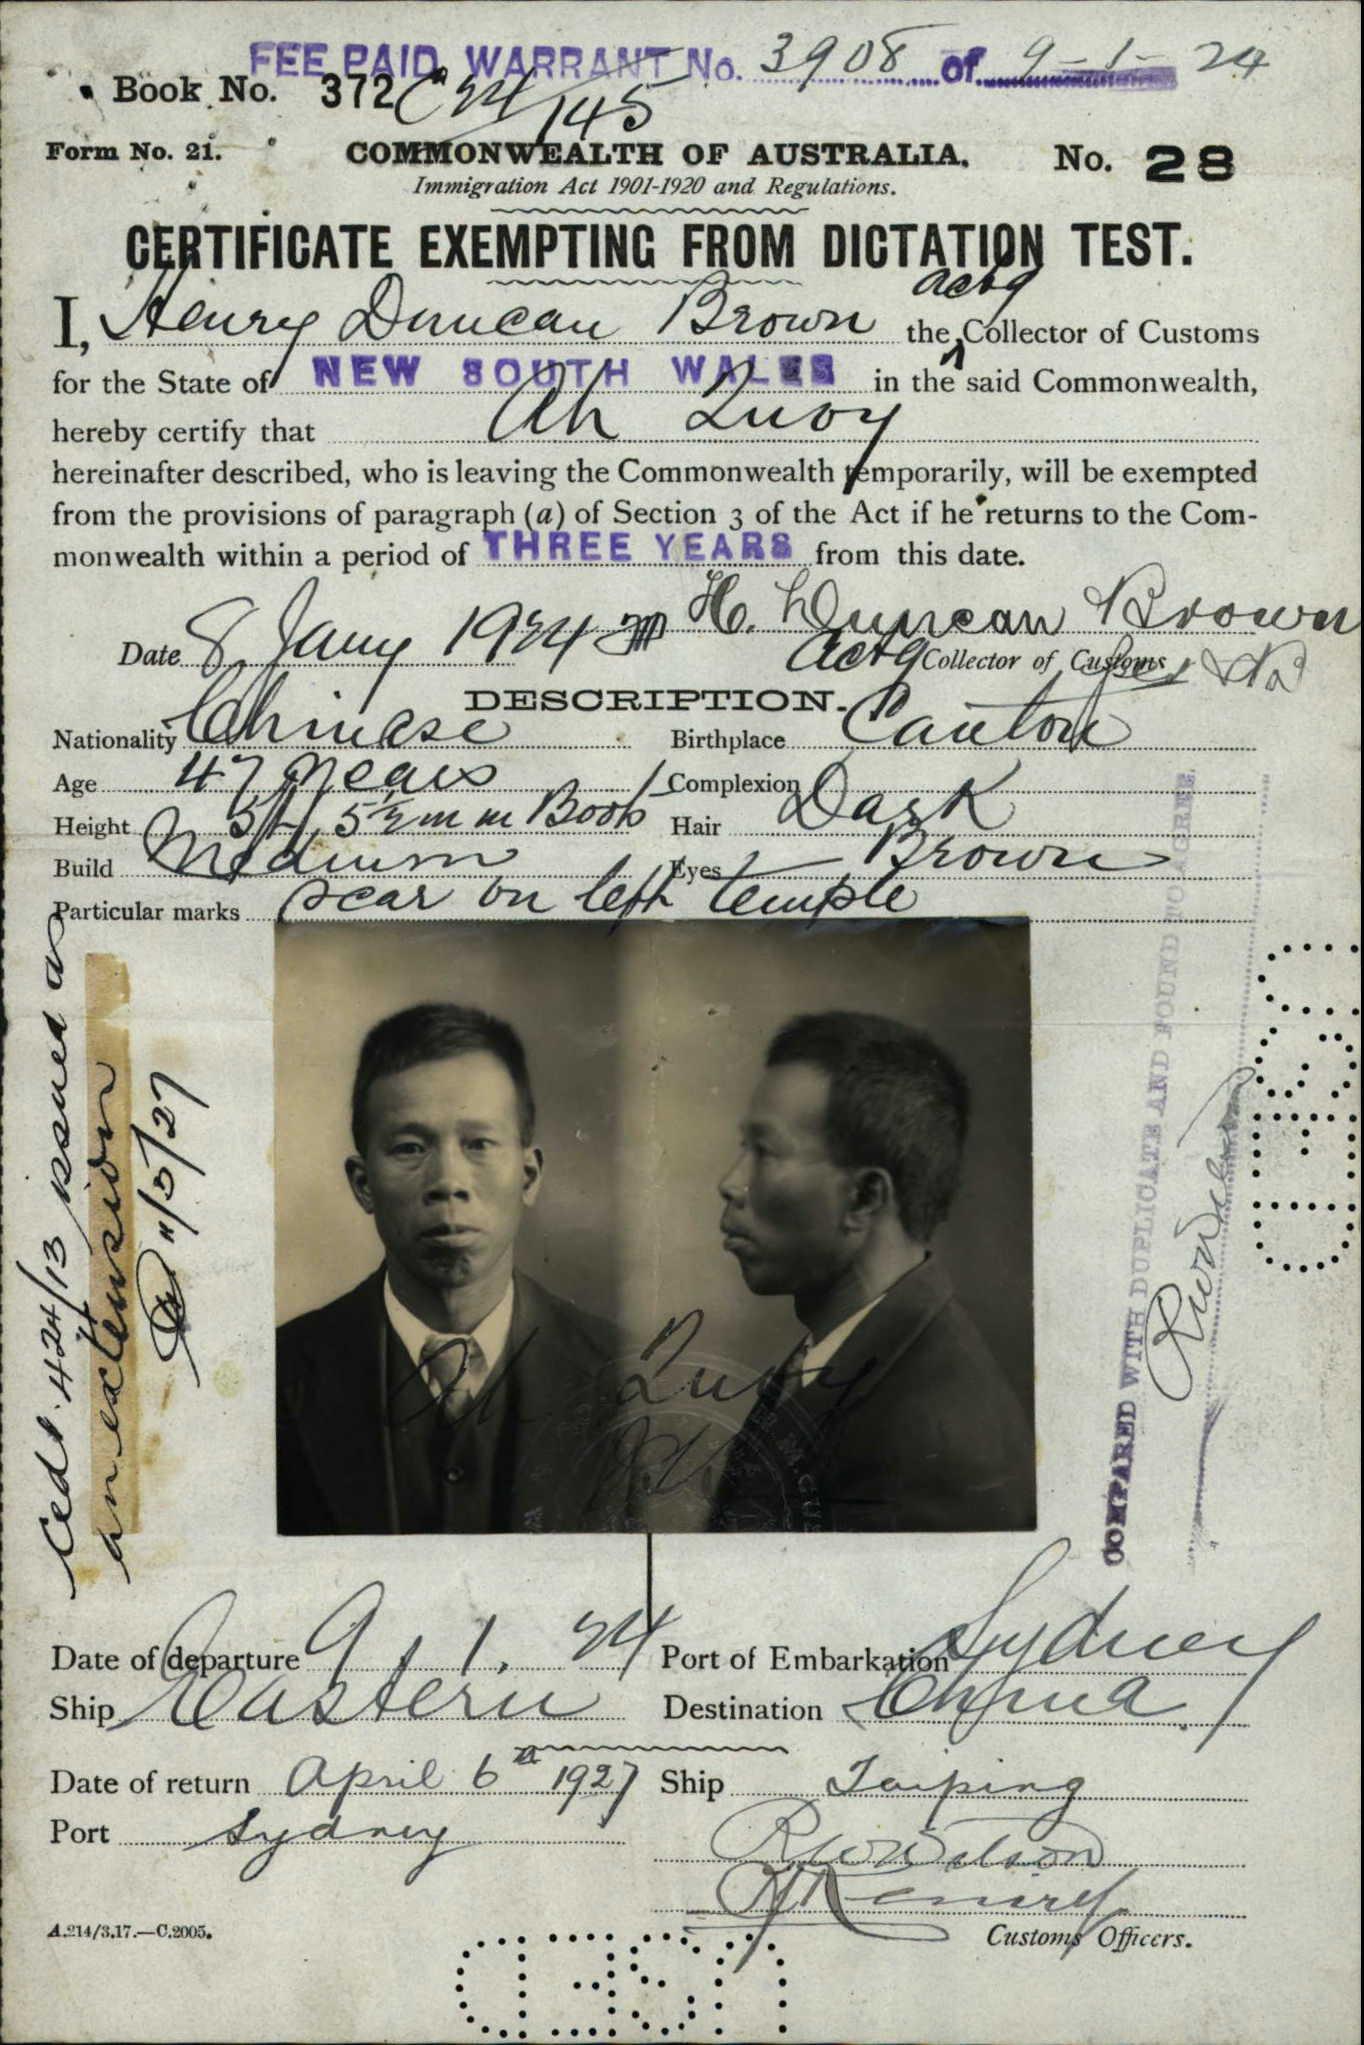 FEE PAID, WARRANT No. 3908 of 9-1-24
Book No. 372 C24/145
Form No. 21. COMMONWEALTH OF AUSTRALIA. No. 28
Immigration Act 1901-1920 and Regulations.
CERTIFICATE EXEMPTING FROM DICTATION TEST.
actg
I, Henry Duncan Brown the Collector of Customs
for the State of NEW SOUTH WALES in the said Commonwealth,
hereby certify that Ah Quoy
hereinafter described, who is leaving the Commonwealth temporarily, will be exempted
from the provisions of paragraph (a) of Section 3 of the Act if he returns to the Com-
monwealth within a period of THREE YEARS from this date.
H. Duncan Brown
Date 8 Jany 1924 Actg Collector of Customs
DESCRIPTION.
Nationality Chinese Birthplace Canton
Age 47 years Complexion Dark
Height 5ft 5½ in in Boots Hair
Build Medium Eyes Brown
Particular marks scar on left temple
Cedt 424/13 issued as
an extension
11/5/27
Ah Quoy
COMPARED WITH DUPLICATE AND FOUND TO AGREE.
RW Wilson
Date of departure 9.1.24 Port of Embarkation Sydney
Ship Eastern Destination China
Date of return April 6th 1927 Ship Taiping
Port Sydney
RW Wilson
Customs Officers.
A.214/3.17.—C.2005.